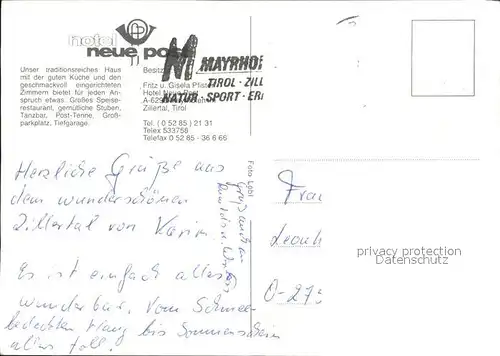 hotel
neue post
Unser traditionsreiches Haus
mit der guten Küche und den
geschmackvoll eingerichteten
Zimmern bietet für jeden An-
spruch etwas. Großes Speise-
restaurant, gemütliche Stuben,
Tanzbar, Post-Tenne, Groß-
parkplatz, Tiefgarage.
Besitz
Fritz u. Gisela Pfister
Hotel Neue Post
A-6290 Mayrhofen
Zillertal, Tirol
Tel. (0 52 85) 21 31
Telex 533758
Telefax 0 52 85 - 36 6 66
M MAYRHOF
TIROL · ZILL
NATUR · SPORT · ER
Herzliche Grüße aus
dem wunderschönen
Zillertal von Karin.
Es ist einfach alles
wunderbar. Vom Schnee-
bedeckten Hang bis Sonnenschein
alles toll.
Foto Löbl
Gruß auch an
Frau
Leonh
O-272
privacy protection
Datenschutz